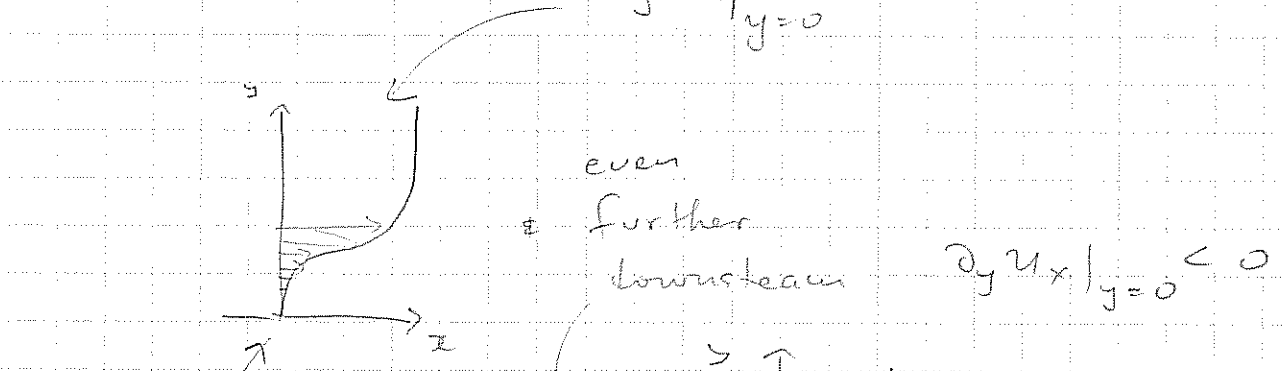 |y=0
y
even
& further
downsteam
∂y ux|y=0 < 0
x